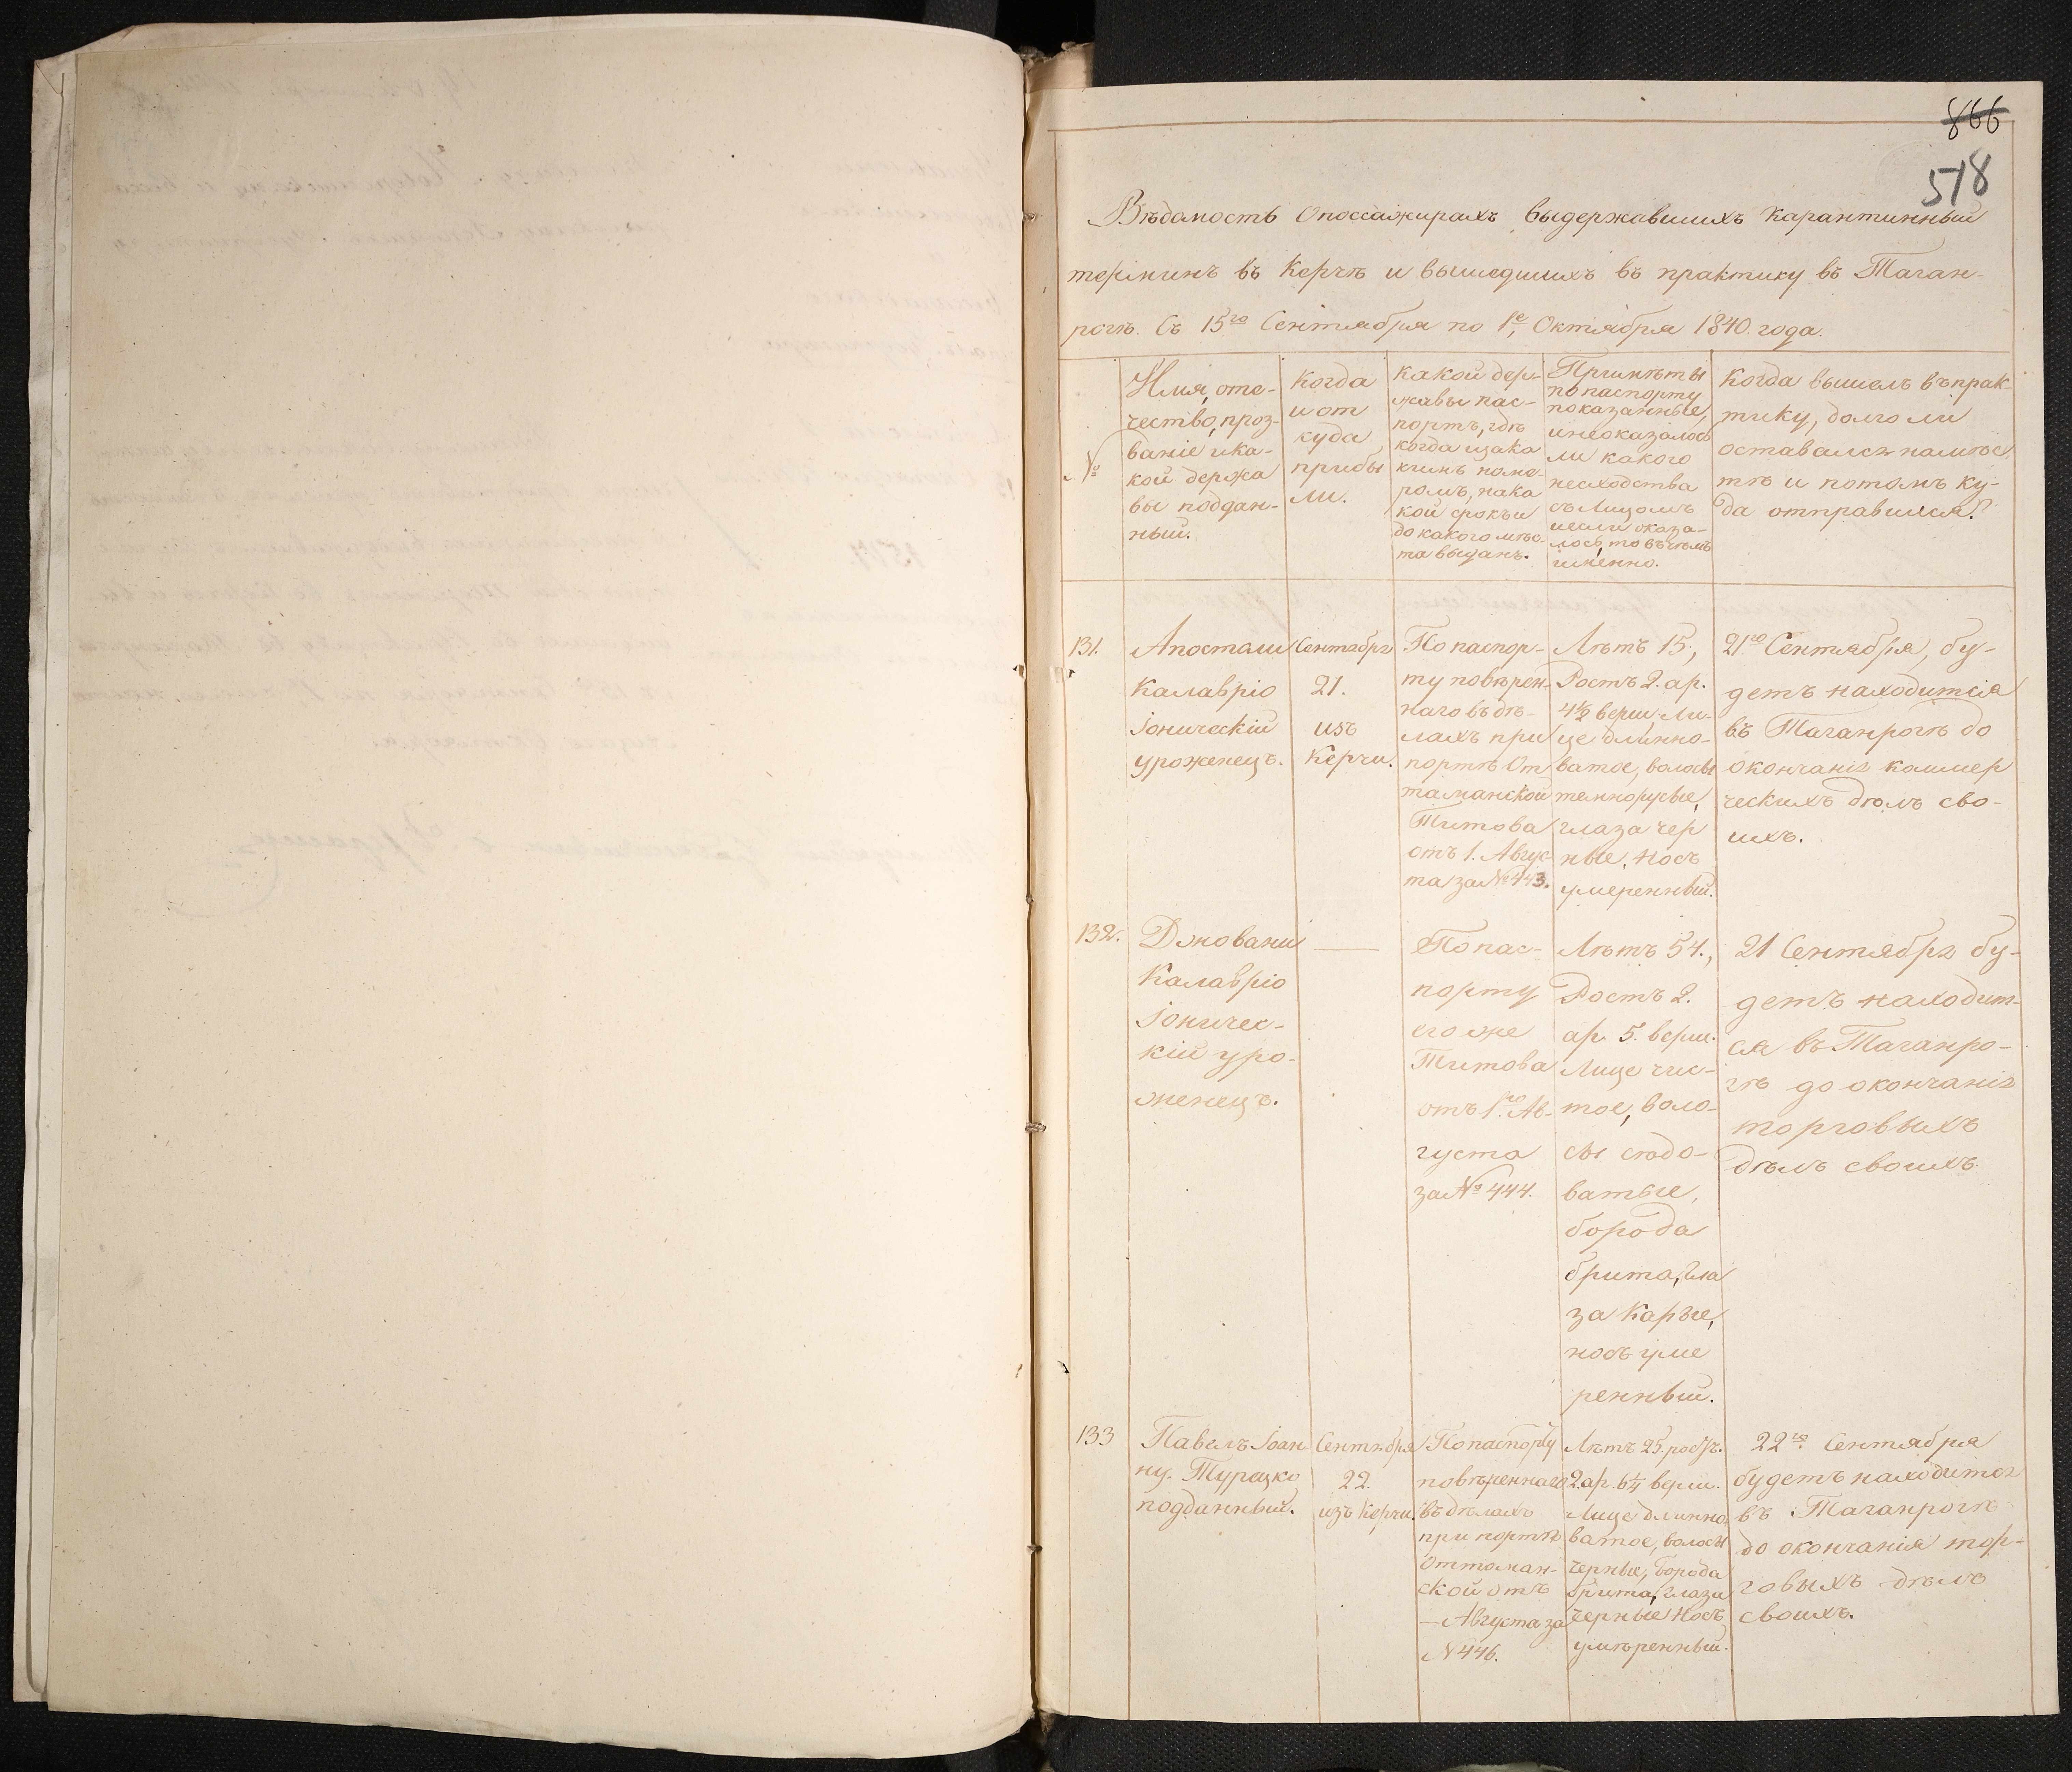 866
518
Вѣдомость о поссажирахъ выдержавшихъ карантинный
терминъ въ Керчѣ и вышедшихъ въ практику въ Таган-
рогѣ. Съ 15го Сентября по 1е Октября 1840. года.
№
Имя, оте-
чество, проз-
ваніе и ка-
кой держа
вы поддан-
ный.
Когда
и от
куда
прибы
ли.
какой дер-
жавы пас-
портъ, гдѣ
когда и за ка
кимъ номе-
ромъ, на ка
кой срокъ и
до какого мѣс-
та выданъ.
Примѣты
по паспорту
показанные,
и неоказалось
ли какого
несходства
съ Лицомъ
и если оказа-
лось, то въ чемъ
именно.
Когда вышелъ въ прак-
тику, долго ли
оставался на мѣс
тѣ и потомъ ку-
да отправился?
131.
Апостоли
Калавріо
Іоническій
уроженецъ.
Сентября
21.
изъ
Керчи.
По паспор-
ту повѣрен-
наго въ дѣ-
лахъ при
портѣ От
таманской
Титова
отъ 1. Авгус
та за № 443.
Лѣтъ 15.,
Ростъ 2. ар.
4½ верш. Ли-
це длинно-
ватое, волосы
темнорусые,
глаза чер
ные, носъ
умеренный.
21го Сентября, бу-
детъ находится
въ Таганрогѣ до
окончанія коммер
ческихъ дѣлъ сво-
ихъ.
132.
Джовани
Калавріо
Іоничес-
кій уро-
женецъ.
По пас-
порту
его же
Титова
отъ 1го Ав-
густа
за № 444.
Лѣтъ 54.,
Ростъ 2.
ар. 5. верш.
Лице чис-
тое, воло-
сы сѣдо-
ватые,
борода
брита, гла
за карые,
носъ уме
ренный.
21 Сентября бу-
детъ находит-
ся въ Таганро-
гѣ до окончанія
торговыхъ
дѣлъ своихъ.
133
Павелъ Іоан
ну. Турецко
подданный.
Сентября
22.
изъ Керчи.
По паспорту
повѣреннаго
въ дѣлахъ
при портѣ
Оттоман-
ской отъ
— Августа за
№ 446.
Лѣтъ 25.
2. ар. 6¼ верш.
Лице длинно
ватое, волосы
черные, борода
брита, глаза
черные носъ
умѣренный.
22го Сентября
будетъ находится
въ Таганрогѣ
до окончанія тор-
говыхъ дѣлъ
своихъ.